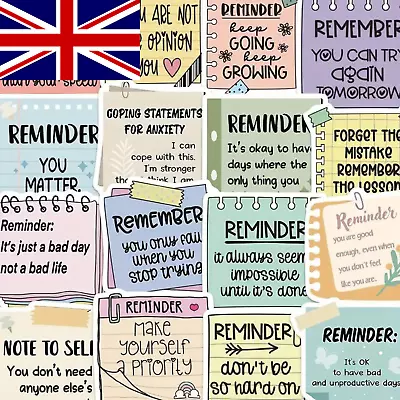 YOU ARE NOT
OPINION
YOU
than your speed
REMINDER
keep
GOING
keep
GROWING
REMEMBER
YOU CAN TRY
again
TOMORROW
REMINDER
YOU
MATTER.
COPING STATEMENTS
FOR ANXIETY
I can
cope with this.
I'm stronger
than I think I am
REMINDER
It's okay to have
days where the
only thing you
FORGET THE
MISTAKE
REMEMBER
THE LESSON
Reminder:
It's just a bad day
not a bad life
REMEMBER
you only fail
when you
stop trying
REMINDER
it always seems
impossible
until it's done
Reminder
you are good
enough, even when
you don't feel
like you are.
NOTE TO SELF
You don't need
anyone else's
REMINDER
make
yourself
a
priority
REMINDER
don't be
so hard on
REMINDER:
It's OK
to have bad
and unproductive days